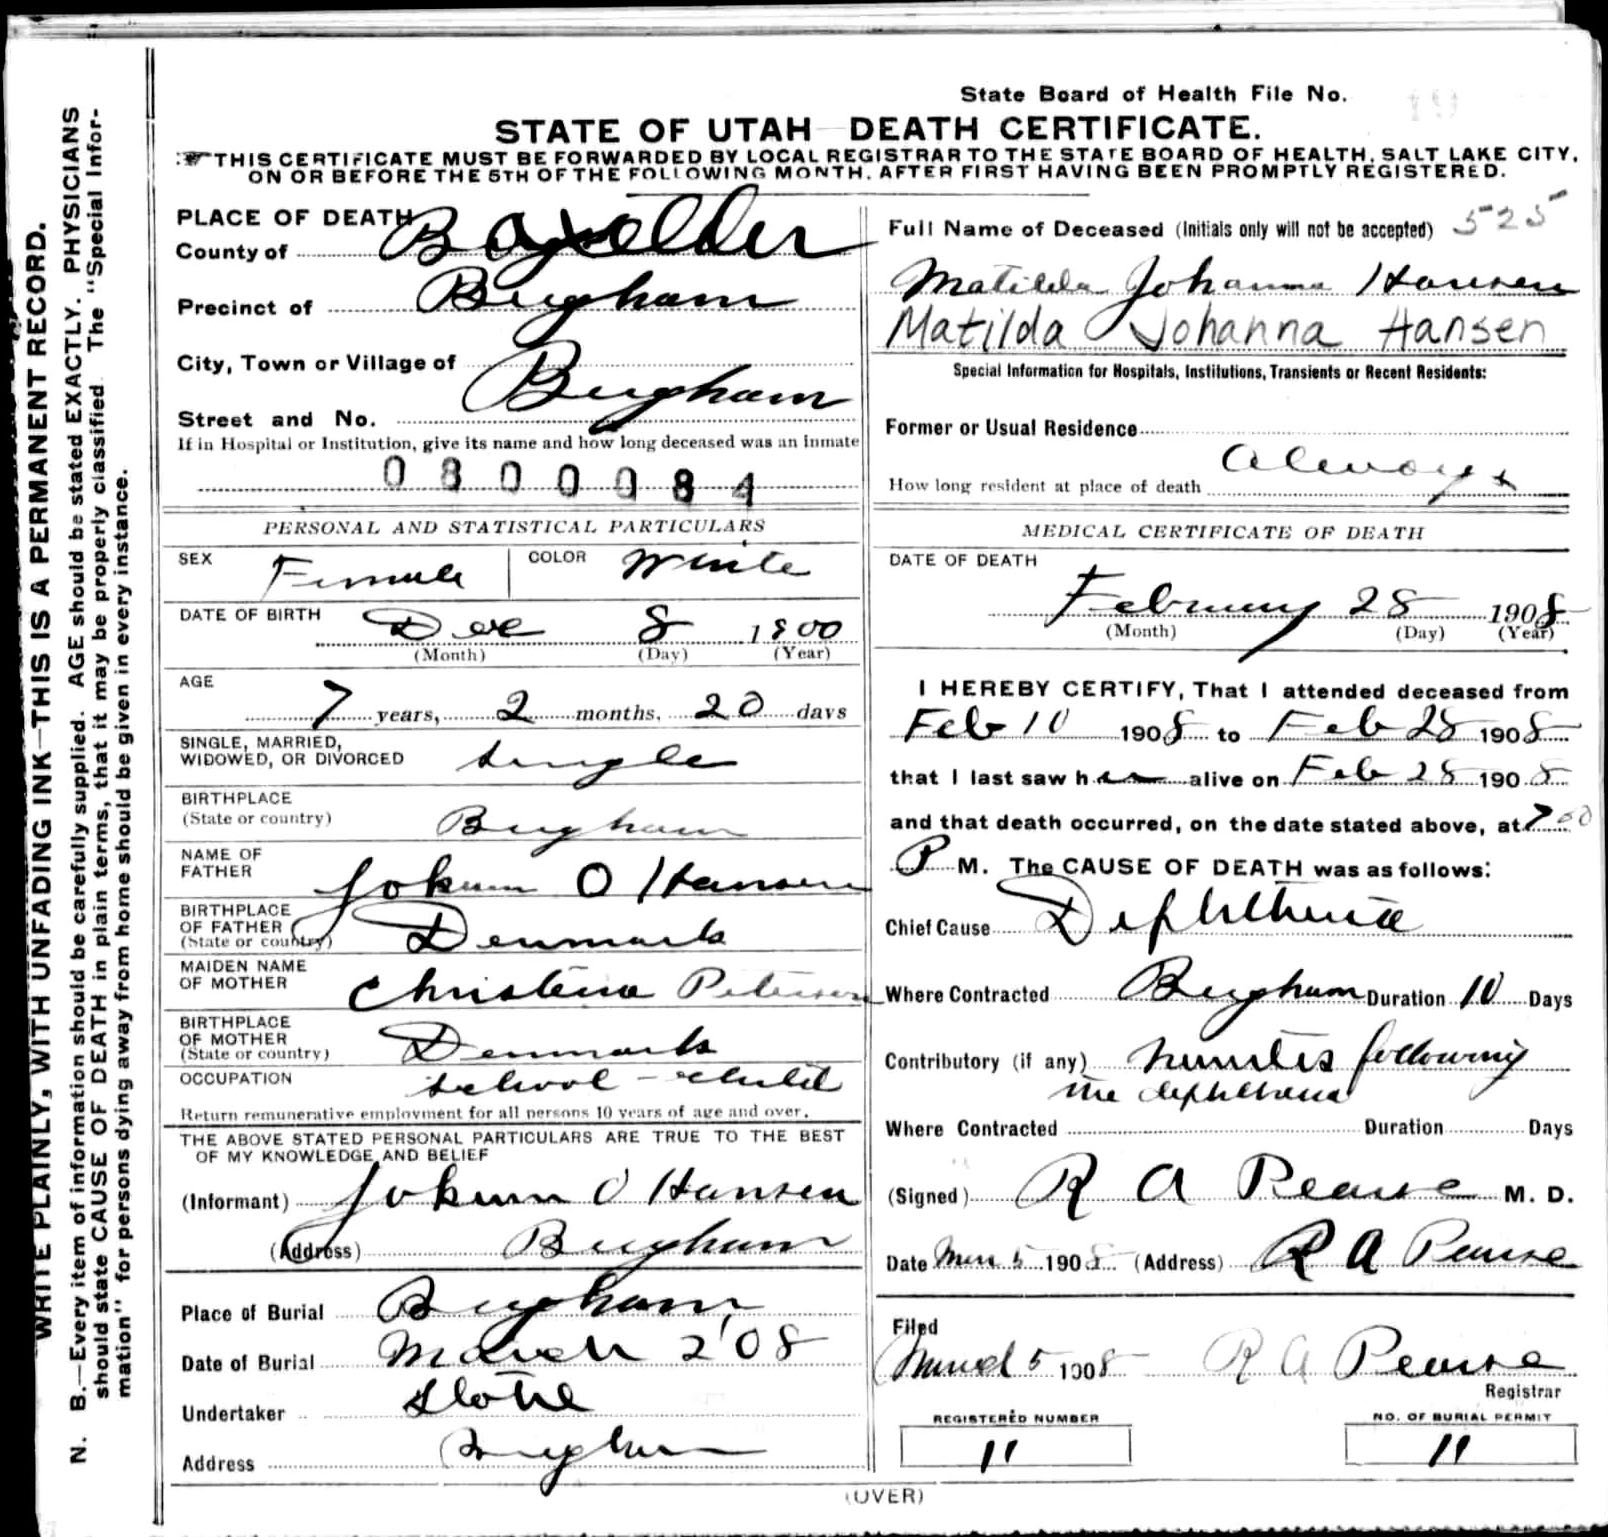 State Board of Health File No.
STATE OF UTAH—DEATH CERTIFICATE.
☞THIS CERTIFICATE MUST BE FORWARDED BY LOCAL REGISTRAR TO THE STATE BOARD OF HEALTH, SALT LAKE CITY,
ON OR BEFORE THE 5TH OF THE FOLLOWING MONTH, AFTER FIRST HAVING BEEN PROMPTLY REGISTERED.
WRITE PLAINLY, WITH UNFADING INK—THIS IS A PERMANENT RECORD.
N. B.—Every item of information should be carefully supplied. AGE should be stated EXACTLY. PHYSICIANS
should state CAUSE OF DEATH in plain terms, that it may be properly classified. The "Special Infor-
mation" for persons dying away from home should be given in every instance.
PLACE OF DEATH
County of Boxelder
Precinct of Brigham
City, Town or Village of Brigham
Street and No.
If in Hospital or Institution, give its name and how long deceased was an inmate
0800084
PERSONAL AND STATISTICAL PARTICULARS
SEX Female COLOR White
DATE OF BIRTH Dec 8 1900
(Month) (Day) (Year)
AGE
7 years, 2 months, 20 days
SINGLE, MARRIED,
WIDOWED, OR DIVORCED single
BIRTHPLACE
(State or country) Brigham
NAME OF
FATHER Jokum O Hansen
BIRTHPLACE
OF FATHER
(State or country) Denmark
MAIDEN NAME
OF MOTHER Christena Petersen
BIRTHPLACE
OF MOTHER
(State or country) Denmark
OCCUPATION school-child
Return remunerative employment for all persons 10 years of age and over.
THE ABOVE STATED PERSONAL PARTICULARS ARE TRUE TO THE BEST
OF MY KNOWLEDGE AND BELIEF
(Informant) Jokum O Hansen
(Address) Brigham
Place of Burial Brigham
Date of Burial March 2 '08
Undertaker
Address Brigham
Full Name of Deceased (Initials only will not be accepted) 525
Matilda Johanna Hansen
Matilda Johanna Hansen
Special Information for Hospitals, Institutions, Transients or Recent Residents:
Former or Usual Residence
How long resident at place of death always
MEDICAL CERTIFICATE OF DEATH
DATE OF DEATH
February 28 1908
(Month) (Day) (Year)
I HEREBY CERTIFY, That I attended deceased from
Feb 10 1908 to Feb 28 1908
that I last saw her alive on Feb 28 1908
and that death occurred, on the date stated above, at 7 00
P M. The CAUSE OF DEATH was as follows:
Chief Cause Diphtheria
Where Contracted Brigham Duration 10 Days
Contributory (if any) following
the diphtheria
Where Contracted Duration Days
(Signed) R A Pearse M. D.
Date Mar 5 1908 (Address) R A Pearse
Filed
March 5 1908 R A Pearse
Registrar
REGISTERED NUMBER
11
NO. OF BURIAL PERMIT
11
(OVER)